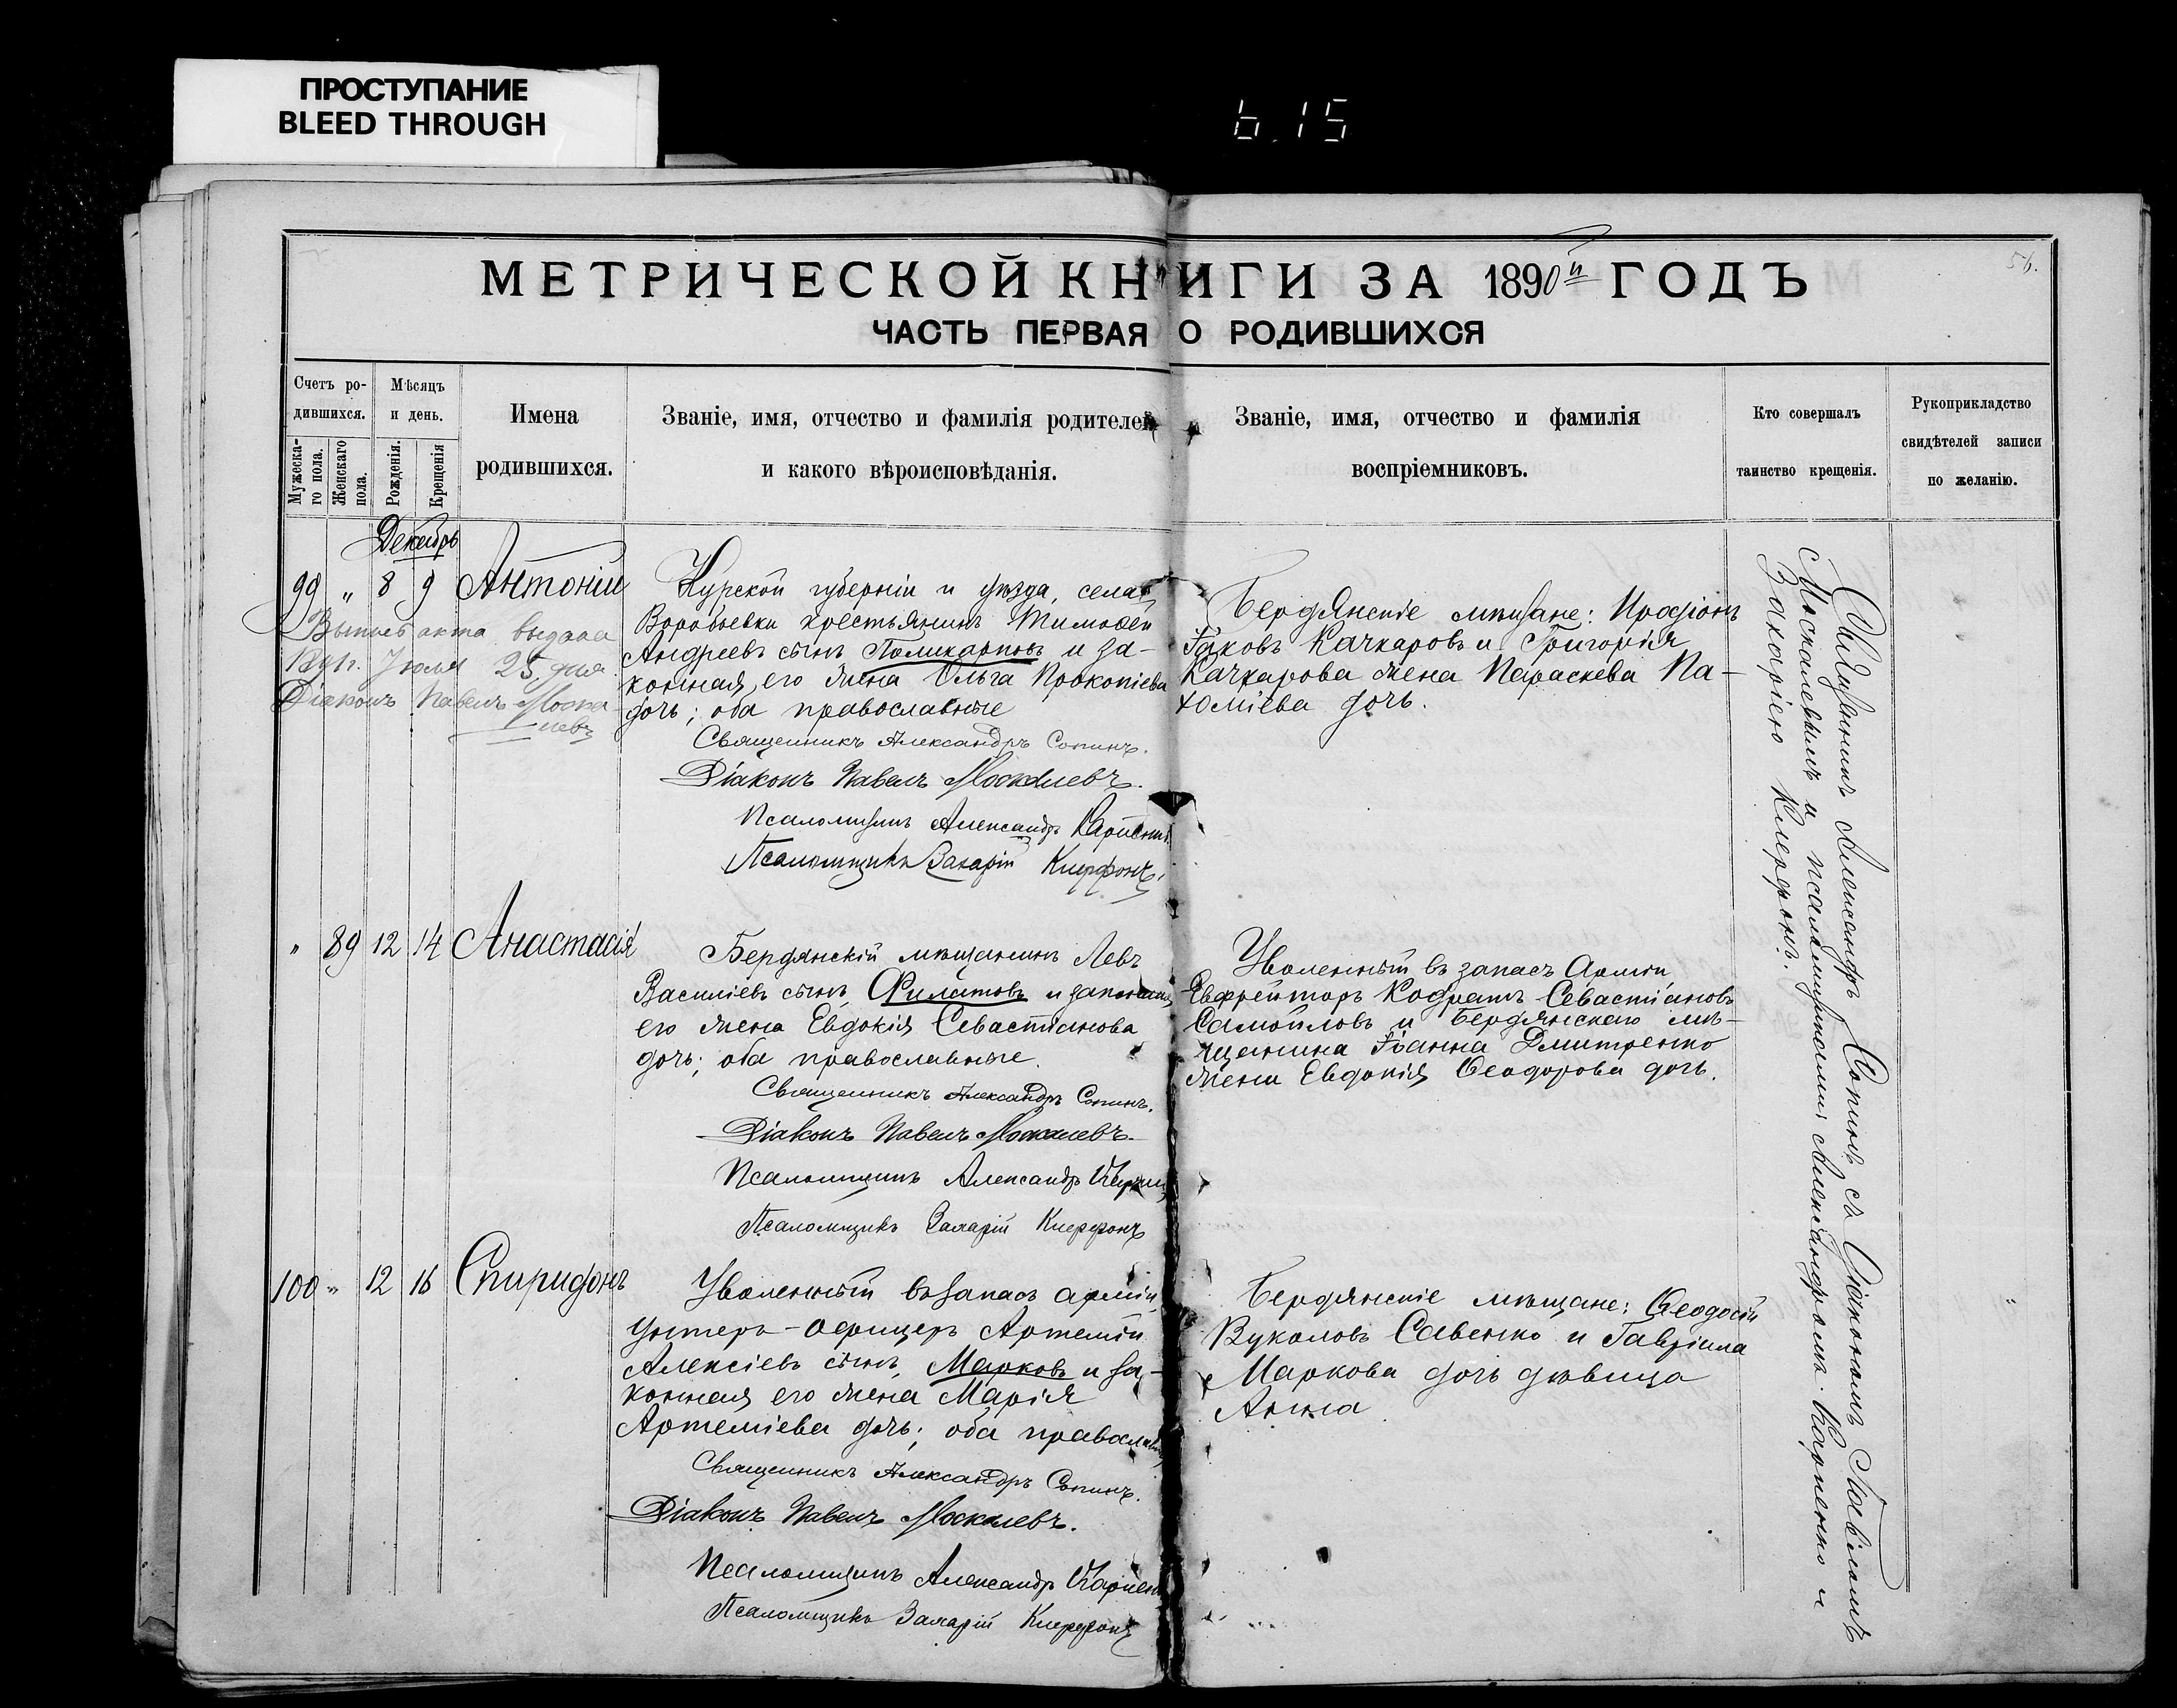 ПРОСТУПАНИЕ
BLEED THROUGH
6.15
56.
МЕТРИЧЕСКОЙ КНИГИ ЗА 1890й ГОДЪ
ЧАСТЬ ПЕРВАЯ О РОДИВШИХСЯ
Счетъ ро-
дившихся.
Мужеска-
го пола.
Женскаго
пола.
Мѣсяцъ
и день.
Рожденія.
Крещенія
Имена
родившихся.
Званіе, имя, отчество и фамилія родителей
и какого вѣроисповѣданія.
Званіе, имя, отчество и фамилія
воспріемниковъ.
Кто совершалъ
таинство крещенія.
Рукоприкладство
свидѣтелей записи
по желанію.
Декабрь
99 " 8 9 Антоній
Выпись акта выдана
Іюля 25 дня
Діаконъ Павелъ Моска-
левъ
Курской губерніи и уѣзда, села
Воробьевки крестьянинъ Тимоѳей
Андреевъ сынъ Поликарповъ и за-
конная его жена Ольга Прокопіева
дочь; оба православные
Священникъ Александръ Сопинъ.
Діаконъ Павелъ Москалевъ.
Псаломщикъ Александръ
Псаломщикъ Захарій
Бердянскіе мѣщане: Иродіонъ
Іаковъ Качкаровъ и Григорія
Качкарова жена Параскева Па-
хоміева дочь.
" 89 12 14 Анастасія
Бердянскій мѣщанинъ Левъ
Василіевъ сынъ Филатовъ и законная
его жена Евдокія Севастіанова
дочь; оба православные.
Священникъ Александръ Сопинъ.
Діаконъ Павелъ Москалевъ.
Псаломщикъ Александръ
Псаломщикъ Захарій
Уволенный въ запасъ Арміи
Евфрейторъ Кодратъ Севастіановъ
Самойловъ и Бердянскаго мѣ-
щанина Іоанна Дмитренко
жена Евдокія Ѳеодорова дочь.
100 " 12 16 Спиридонъ
Уволенный въ запасъ арміи,
Унтеръ-Офицеръ Артемій
Алексіевъ сынъ Марковъ и за-
конная его жена Марія
Артеміева дочь; оба православные
Священникъ Александръ Сопинъ.
Діаконъ Павелъ Москалевъ.
Псаломщикъ Александръ
Псаломщикъ Захарій
Бердянскіе мѣщане: Ѳеодосій
Вуколовъ Савенко и Гавріила
Маркова дочь дѣвица
Анна
Священникъ Александръ Сопинъ съ Діакономъ Павломъ
Москалевымъ и псаломщиками: Александромъ Карпенко и
Захаріею